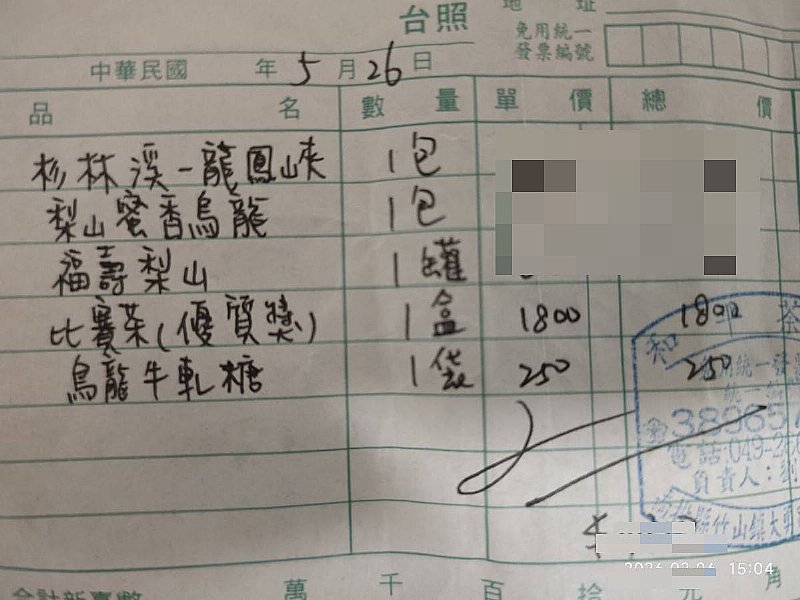 地 址
台照
免用統一
發票編號
中華民國 年 5 月 26 日
品 名 數 量 單 價 總 價
杉林溪-龍鳳峽 1包
梨山蜜香烏龍 1包
福壽梨山 1罐
比賽茶(優質獎) 1盒 1800 1800
烏龍牛軋糖 1袋 250 250
和
茶
統一發
統一
389657
電話:049-2
負責人:劉
縣竹山鎮大
15:04
合計新臺幣 萬 千 百 拾 元 角